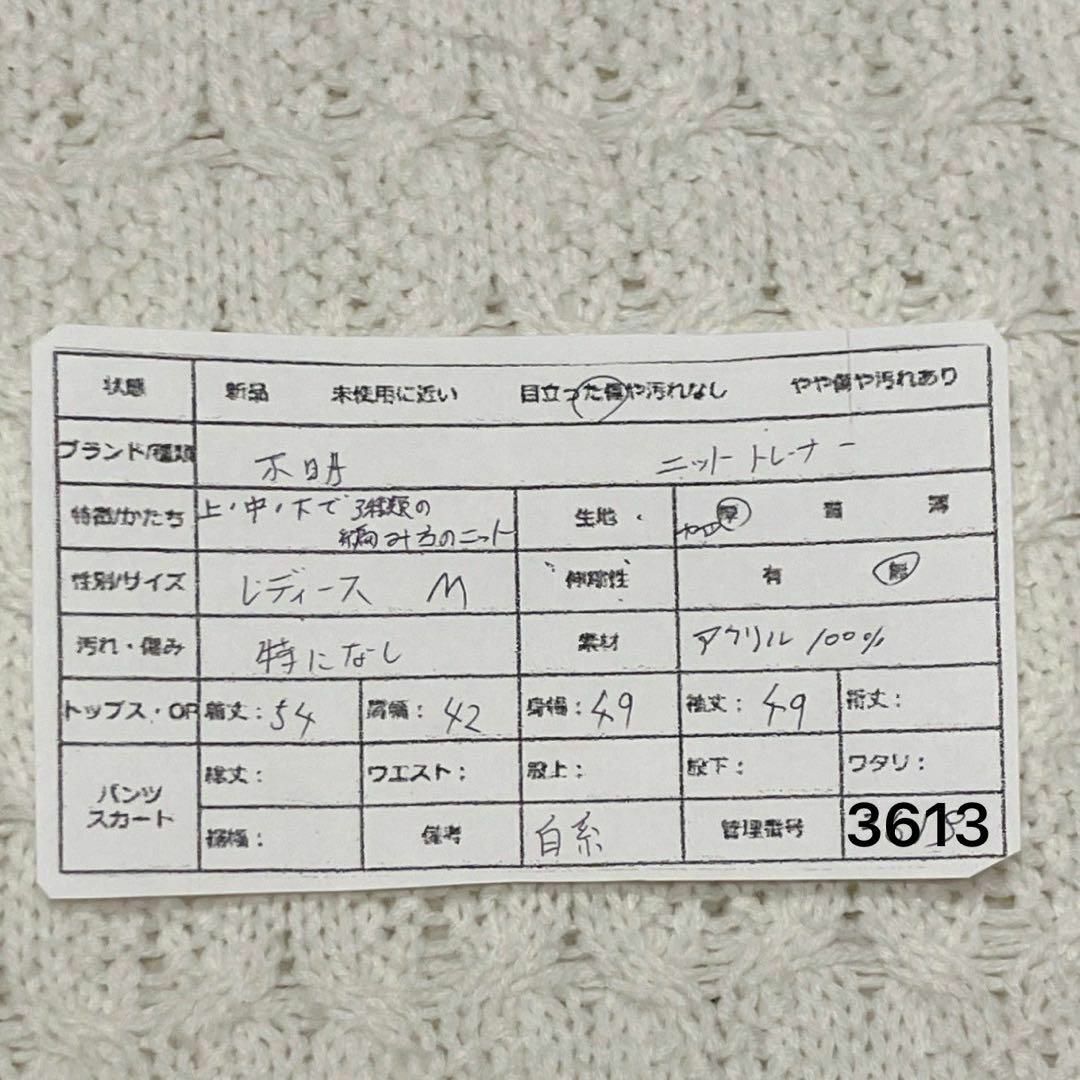 状態 新品 未使用に近い 目立った傷や汚れなし やや傷や汚れあり
ブランド/種類 不明 ニットトレーナー
特徴/かたち 上・中・下で3種類の
編み方のニット
生地 やや 厚 普 薄
性別/サイズ レディース M 伸縮性 有 無
汚れ・傷み 特になし 素材 アクリル100%
トップス・OP 着丈:54 肩幅:42 身幅:49 袖丈:49 裄丈:
パンツ
スカート
総丈: ウエスト: 股上: 股下: ワタリ:
裾幅: 備考 白系 管理番号 3613